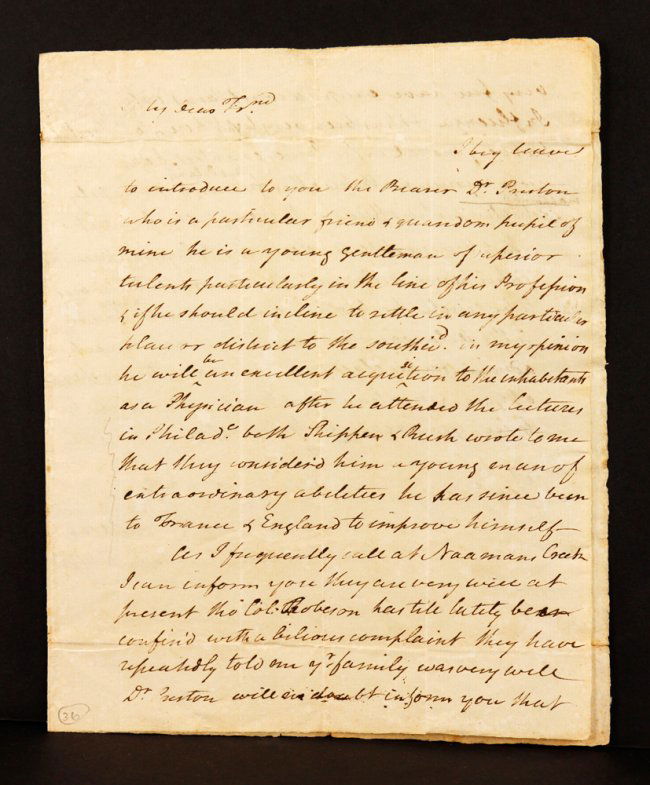 My dear Frnd
I beg leave
to introduce to you the Bearer Dr. Preston
who is a particular friend & quandom pupil of
mine he is a young gentleman of uperior
talents particularly in the line of his Profession
& if he should incline to settle in any particular
place or district to the southwd. in my opinion
he will be an excellent acquisition to the inhabitants
as a Physician after he attended the lectures
in Philada. both Shippen & Rush wrote to me
that they consider'd him a young man of
extraordinary abilities he has since been
to France & England to improve himself
As I frequently call at Naamans Creek
I can inform you they are very well at
present tho Col. Robeson has till lately been
confin'd with a bilious complaint they have
repeatedly told me yr. family was very well
Dr. Preston will no doubt inform you that
36